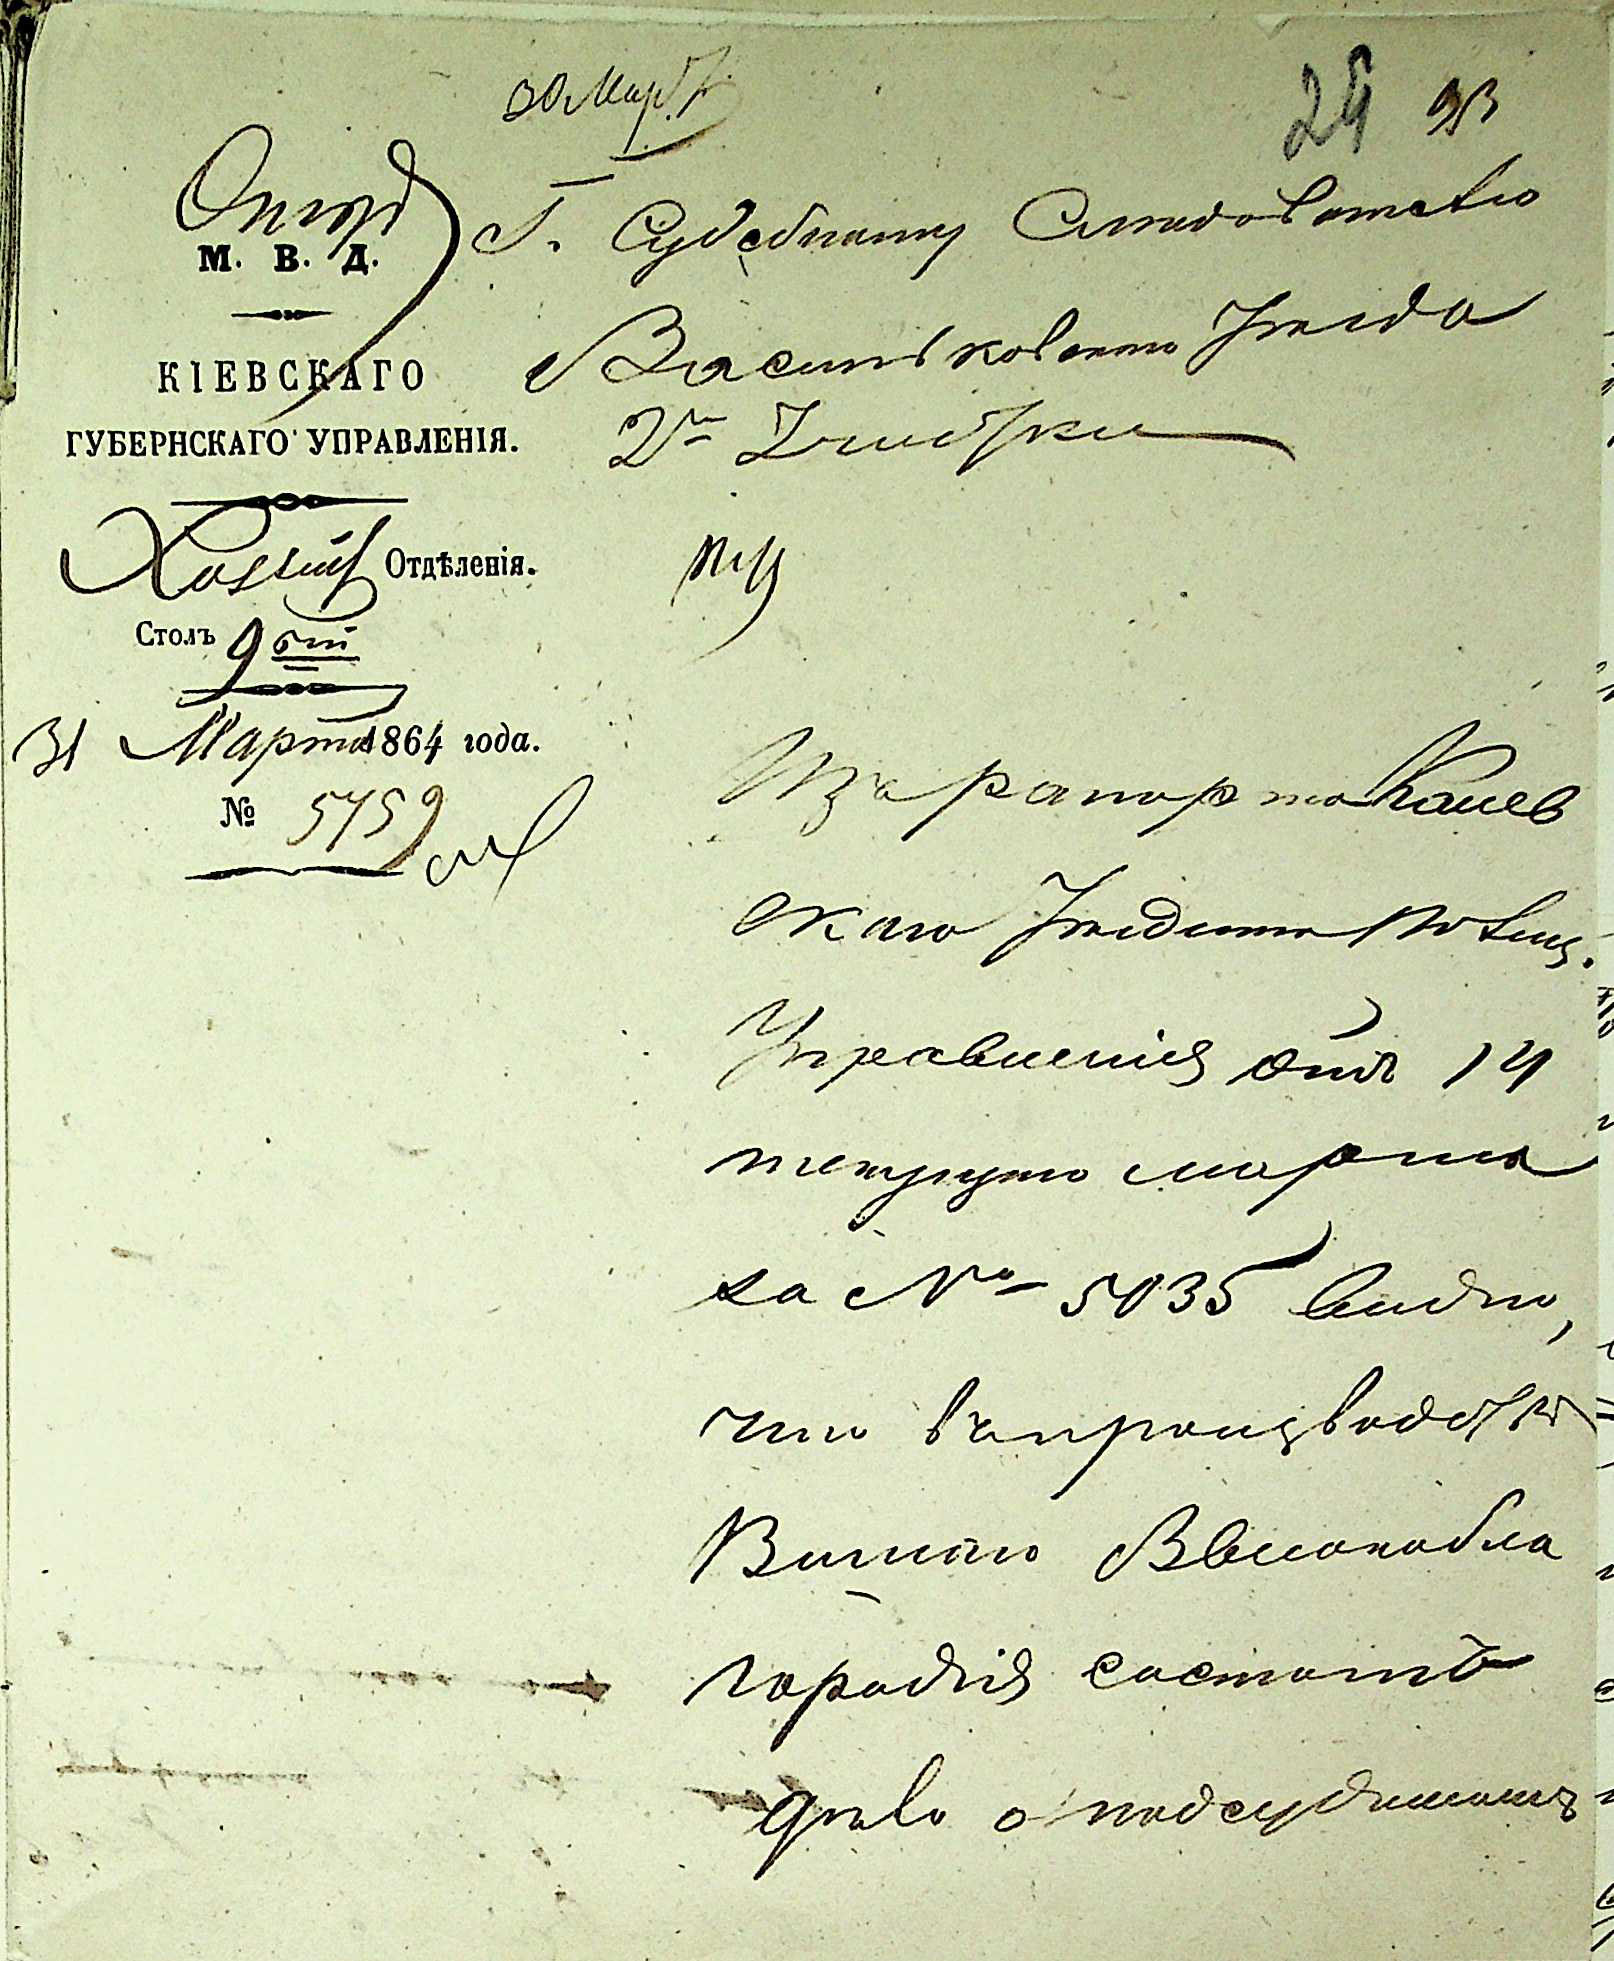 30 Март
24 93
М. В. Д.
КІЕВСКАГО
ГУБЕРНСКАГО УПРАВЛЕНІЯ.
Отдѣленія.
Столъ 9
31 Марта 1864 года.
№ 5759
Г. Судебному Слѣдователю
Васильковскаго Уѣзда
2го Участка
Изъ рапорта Канев
скаго Уѣзднаго Полиц.
Управленія отъ 14
текущаго марта
за № 5035 видно,
что въ производствѣ
Вашего Высокобла
городія состоитъ
дѣло о подсудимомъ